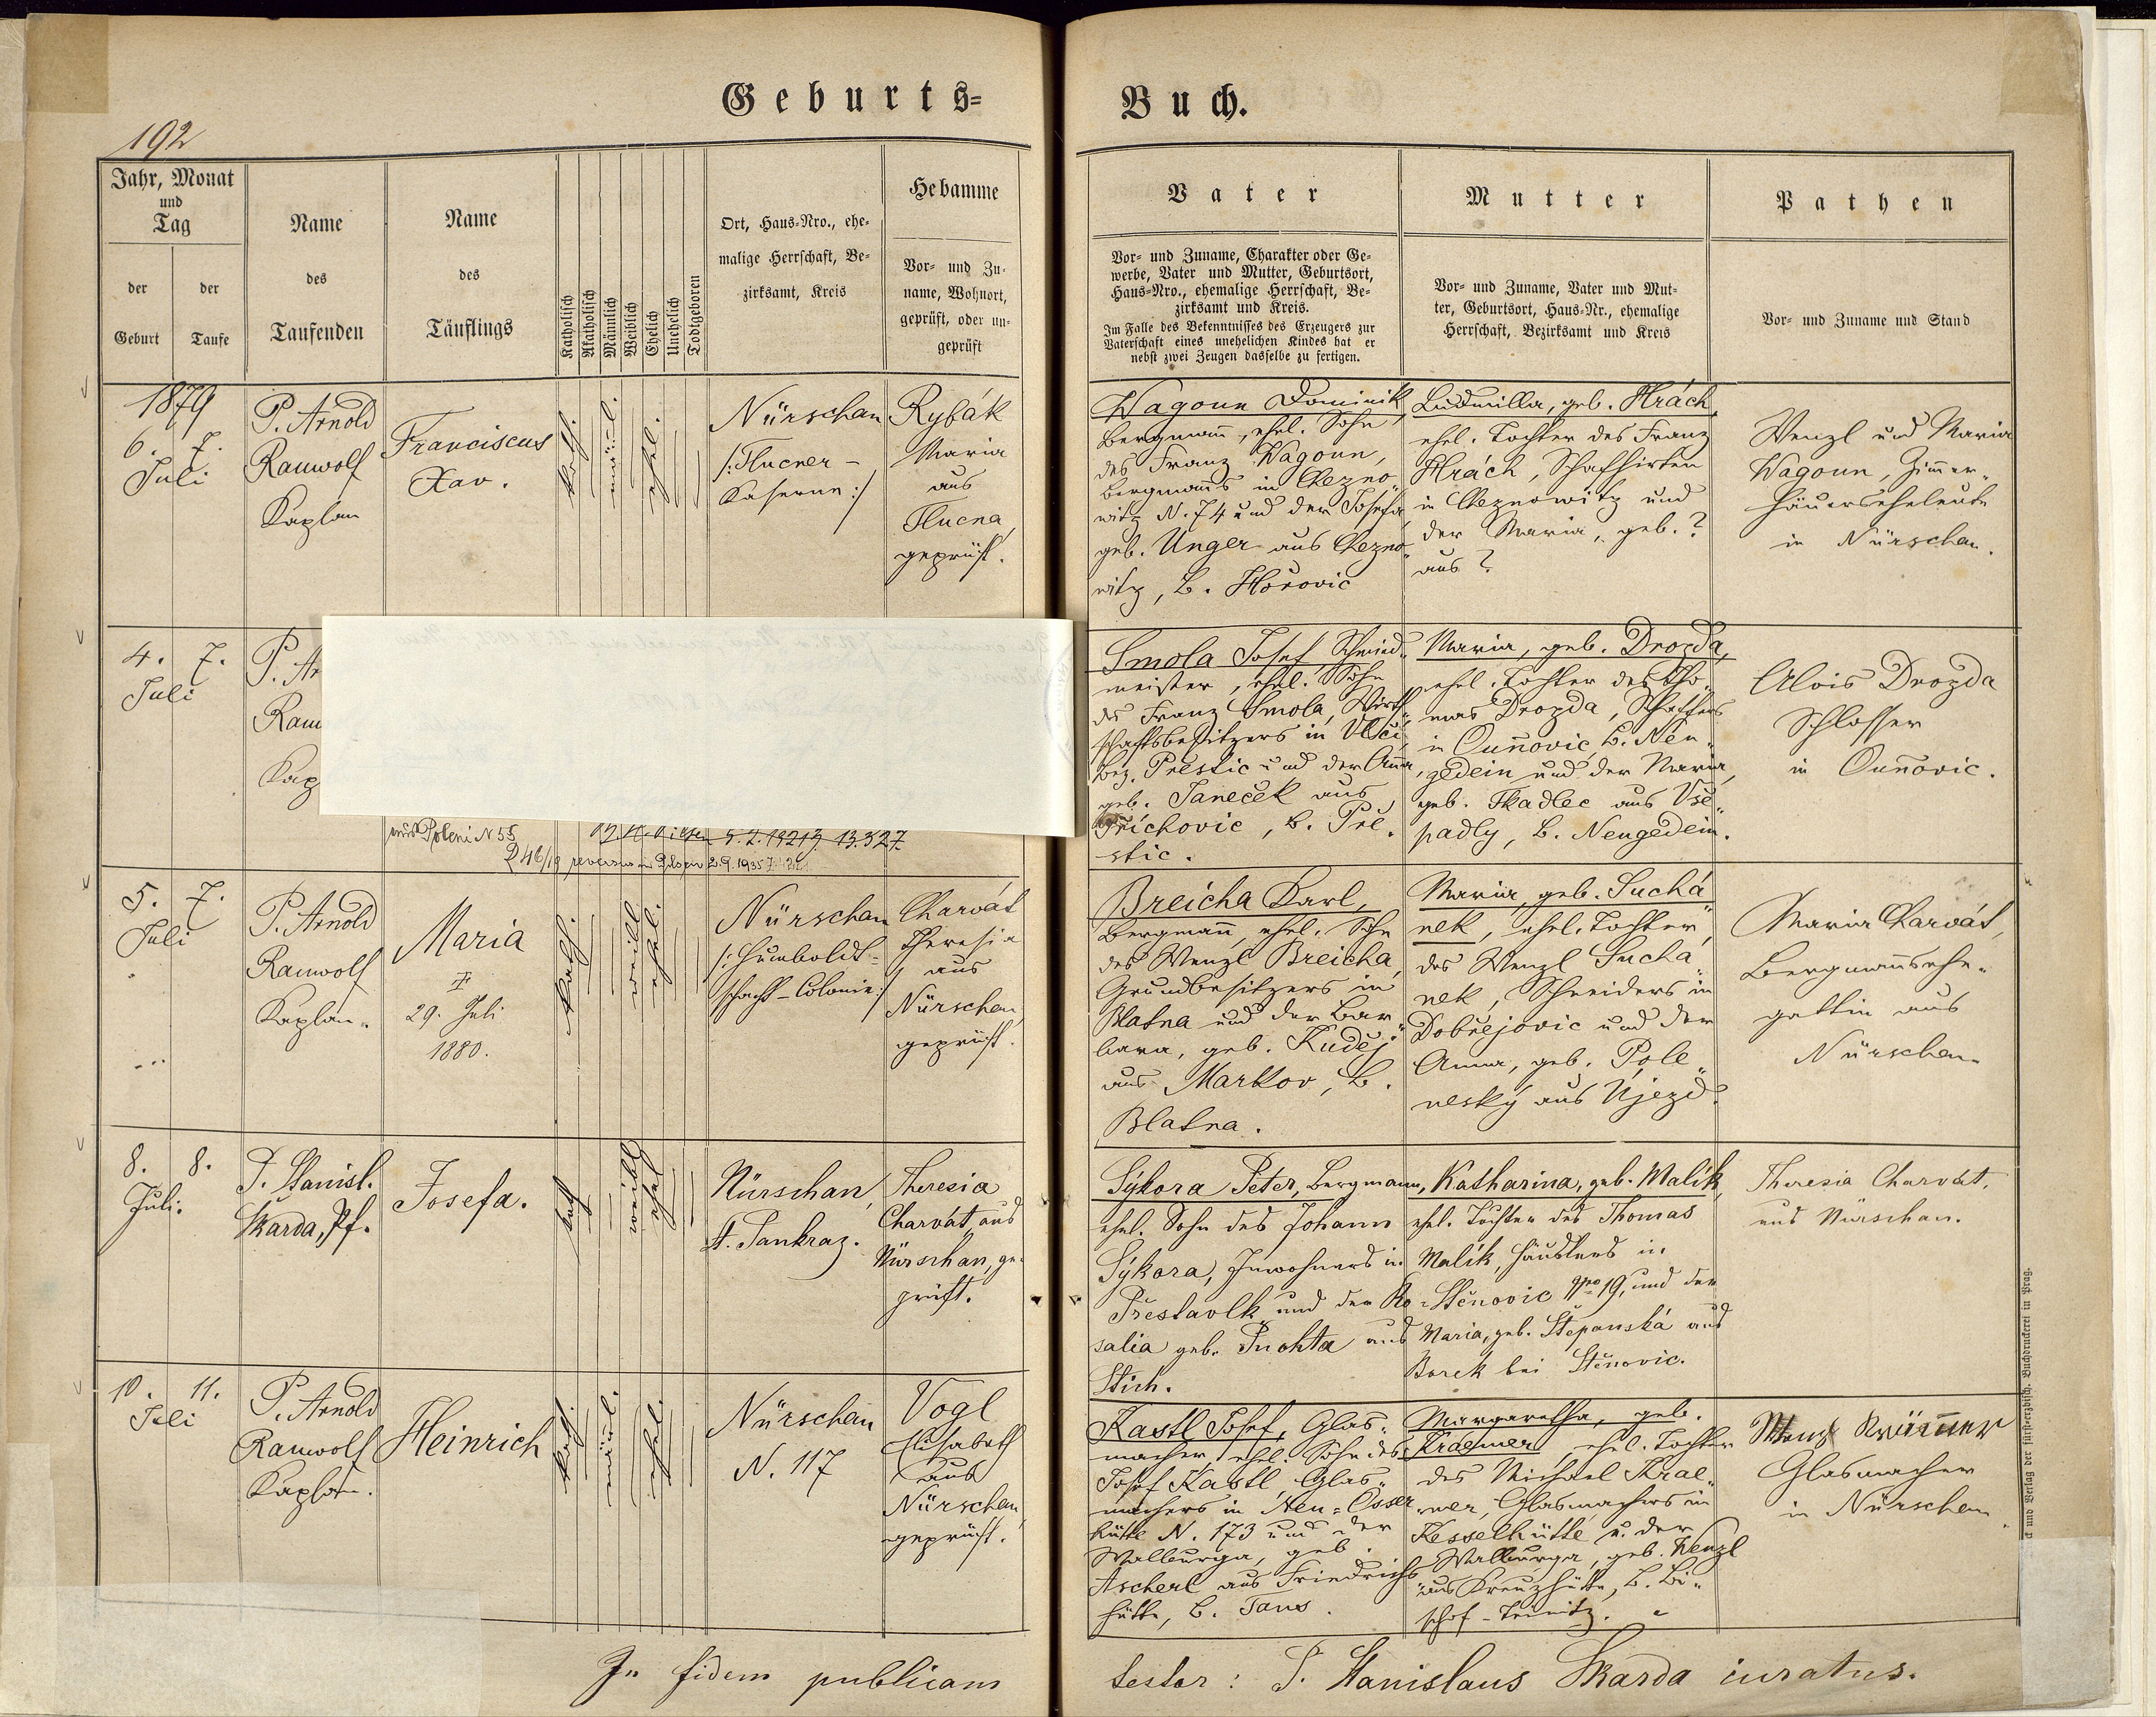 Geburts=
Buch.
192
Jahr, Monat
und
Tag
der
Geburt
der
Taufe
Name
des
Taufenden
Name
des
Täuflings
Katholisch
Akatholisch
Männlich
Weiblich
Ehelich
Unehelich
Todtgeboren
Ort, Haus=Nro., ehe=
malige Herrschaft, Be=
zirksamt, Kreis
Hebamme
Vor= und Zu=
name, Wohnort,
geprüft, oder un=
geprüft
Vater
Vor= und Zuname, Charakter oder Ge=
werbe, Vater und Mutter, Geburtsort,
Haus=Nro., ehemalige Herrschaft, Be=
zirksamt und Kreis.
Im Falle des Bekenntnisses des Erzeugers zur
Vaterschaft eines unehelichen Kindes hat er
nebst zwei Zeugen dasselbe zu fertigen.
Mutter
Vor= und Zuname, Vater und Mut=
ter, Geburtsort, Haus=Nr., ehemalige
Herrschaft, Bezirksamt und Kreis
Pathen
Vor= und Zuname und Stand
1879
6. 7.
Juli
P. Arnold
Rauwolf
Kaplan
Franciscus
Xav.
kath.
männl.
ehel.
Nürschan
/:Tlucner-
Kaserne:/
Rybák
Maria
aus
Tlucna,
geprüft.
Wagoun Dominik,
Bergmann, ehel. Sohn
des Franz Wagoun,
Bergmanns in Chezno„
witz N. 74 und der Josefa,
geb. Unger aus Chezno„
witz, B. Hořovic
Ludmilla, geb. Hrách,
ehel. Tochter des Franz
Hrách, Schafhirten
in Cheznowitz und
der Maria, geb. ?
aus ?
Wenzl und Maria
Wagoun, Zimmer„
häuerseheleute
in Nürschan.
4. 7.
Juli
P. Ar
Rau
Kap
aus Poleni N 55
5. 2. 1921 13.327.
246/19 reversus in Pilsen 2.9.1935
Smola Josef, Schmied„
meister, ehel. Sohn
des Franz Smola, Wirth„
schaftsbesitzers in Vlčí,
Bez. Prestic und der Anna,
geb. Janeček aus
Příchovic, B. Pře„
stic.
Maria, geb. Drozda,
ehel. Tochter des Tho„
mas Drozda, Schaffers
in Ounňovic, B. Neu„
gedein und der Maria,
geb. Tkadlec aus Vše„
padly, B. Neugedein.
Alois Drozda
Schlosser
in Ounňovic.
5. 7.
Juli
P. Arnold
Rauwolf
Kaplan.
Maria
‡
29. Juli
1880.
kath.
weibl.
ehel.
Nürschan
/:Humboldt=
schacht-Colonie:/
Charvát
Theresia
aus
Nürschan,
geprüft.
Breicha Karl,
Bergmann, ehel. Sohn
des Wenzl Breicha,
Grundbesitzers in
Blatna und der Bar„
bara, geb. Kuděj
aus Markov, B.
Blatna.
Maria, geb. Suchá„
nek, ehel. Tochter
des Wenzl Suchá„
nek, Schneiders in
Dobřejovic und der
Anna, geb. Pole„
neský aus Újezd.
Maria Charvát,
Bergmannsehe„
gattin aus
Nürschan.
8. 8.
Juli.
P. Stanisl.
Skarda, Pf.
Josefa.
kath
weibl
ehel
Nürschan,
St. Pankraz.
Theresia
Charvát aus
Nürschan, ge-
prüft.
Sýkora Peter, Bergmann,
ehel. Sohn des Johann
Sýkora, Inwohners in
Přestavlk und der Ro-
salia geb. Puchta aus
Stich.
Katharina, geb. Malík,
ehel. Tochter des Thomas
Malík, Häuslers in
Štěnovic Nro 19, und der
Maria, geb. Štěpanská aus
Borek bei Štěnovic.
Theresia Charvát.
aus Nürschan.
10. 11.
Juli
P. Arnold
Rauwolf
Kaplan.
Heinrich
kath.
männl.
ehel.
Nürschan
N. 117
Vogl
Elisabeth
aus
Nürschan,
geprüft.
Kastl Josef, Glas„
macher, ehel. Sohn des
Josef Kastl, Glas„
machers in Neu=Osser„
hütte N. 173 und der
Walburga, geb.
Ascherl aus Friedrichs„
hütte, B. Taus.
Margaretha, geb.
Kraemer, ehel. Tochter
des Michael Krae„
mer, Glasmachers in
Kesselhütte u. der
Walburga, geb. Wenzl
aus Kreuzhütte, B. Bi„
schof-Teinitz.
Glasmacher
in Nürschan.
In fidem publicam
testor: P. Stanislaus Skarda curatus.
und Verlag der fürst-erzbisch. Buchdruckerei in Prag.